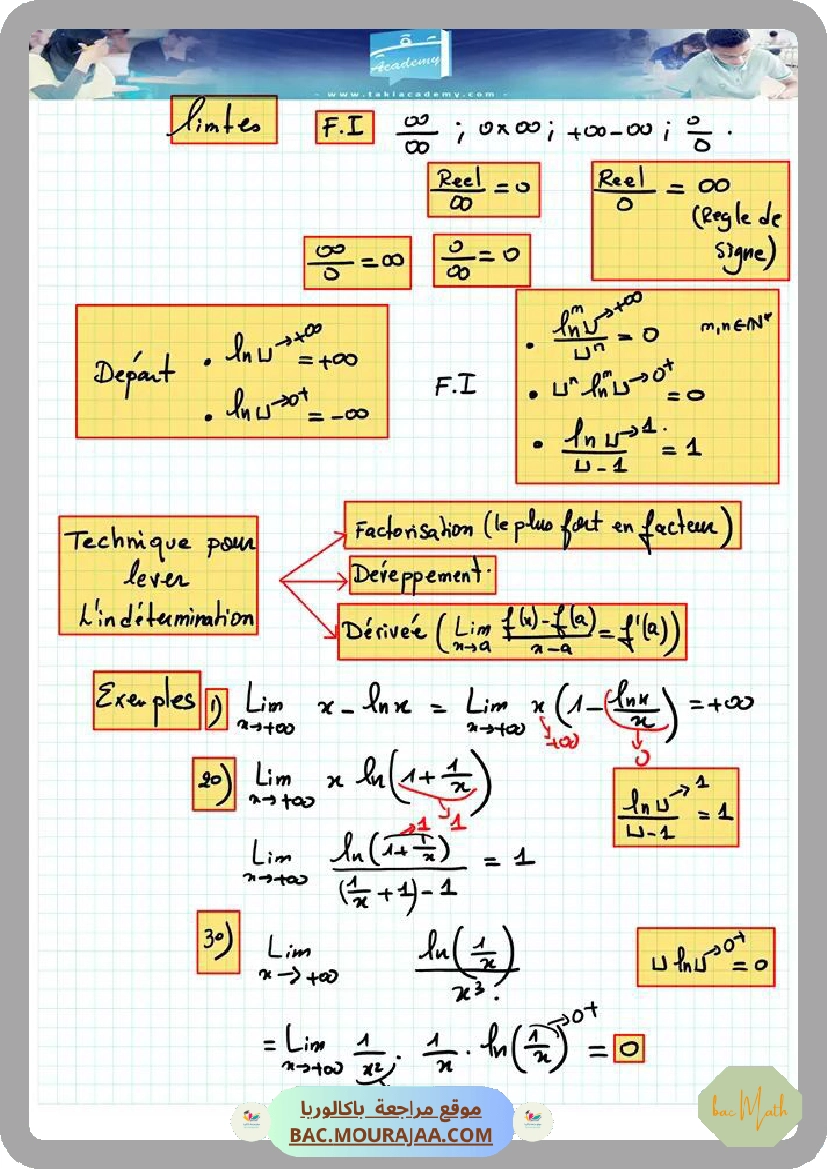 Academy
- www.takiacademy.com -
limtes F.I ∞/∞ ; 0×∞ ; +∞-∞ ; 0/0 .
Reel/∞ = 0
Reel/0 = ∞
(Regle de
signe)
∞/0 = ∞
0/∞ = 0
Départ
• ln U →+∞ = +∞
• ln U →0+ = -∞
F.I
• ln^m U/U^n →+∞ = 0 m,n∈ℕ*
• U^n ln^m U →0+ = 0
• ln U/(U-1) →1 = 1
Technique pour
lever
L'indétermination
Factorisation (le plus fort en facteur)
Déveppement.
Dérivée (Lim x→a (f(x)-f(a))/(x-a) = f'(a))
Exemples 1) Lim x→+∞ x - ln x = Lim x→+∞ x (1 - ln x/x) = +∞
+∞ 0
2o) Lim x→+∞ x ln(1 + 1/x)
→1 1
ln U/(U-1) →1 = 1
Lim x→+∞ ln(1+1/x)/((1/x + 1) - 1) = 1
3o) Lim x→+∞ ln(1/x)/x³ .
U ln U →0+ = 0
= Lim x→+∞ 1/x² . 1/x . ln(1/x) →0+ = 0
موقع مراجعة باكالوريا
BAC.MOURAJAA.COM
bac Math